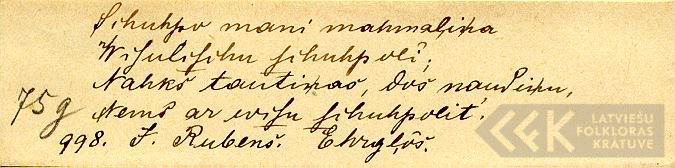 Schuhpo mani mahmaliņa
Wisulischu schuhpolî;
Nahks tautiņas, dos naudiņu,
Nems ar wisu schuhpolit'.
75g
998. J. Rubenis. Ehrgļôs.
LATVIEŠU
FOLKLORAS
KRATUVE